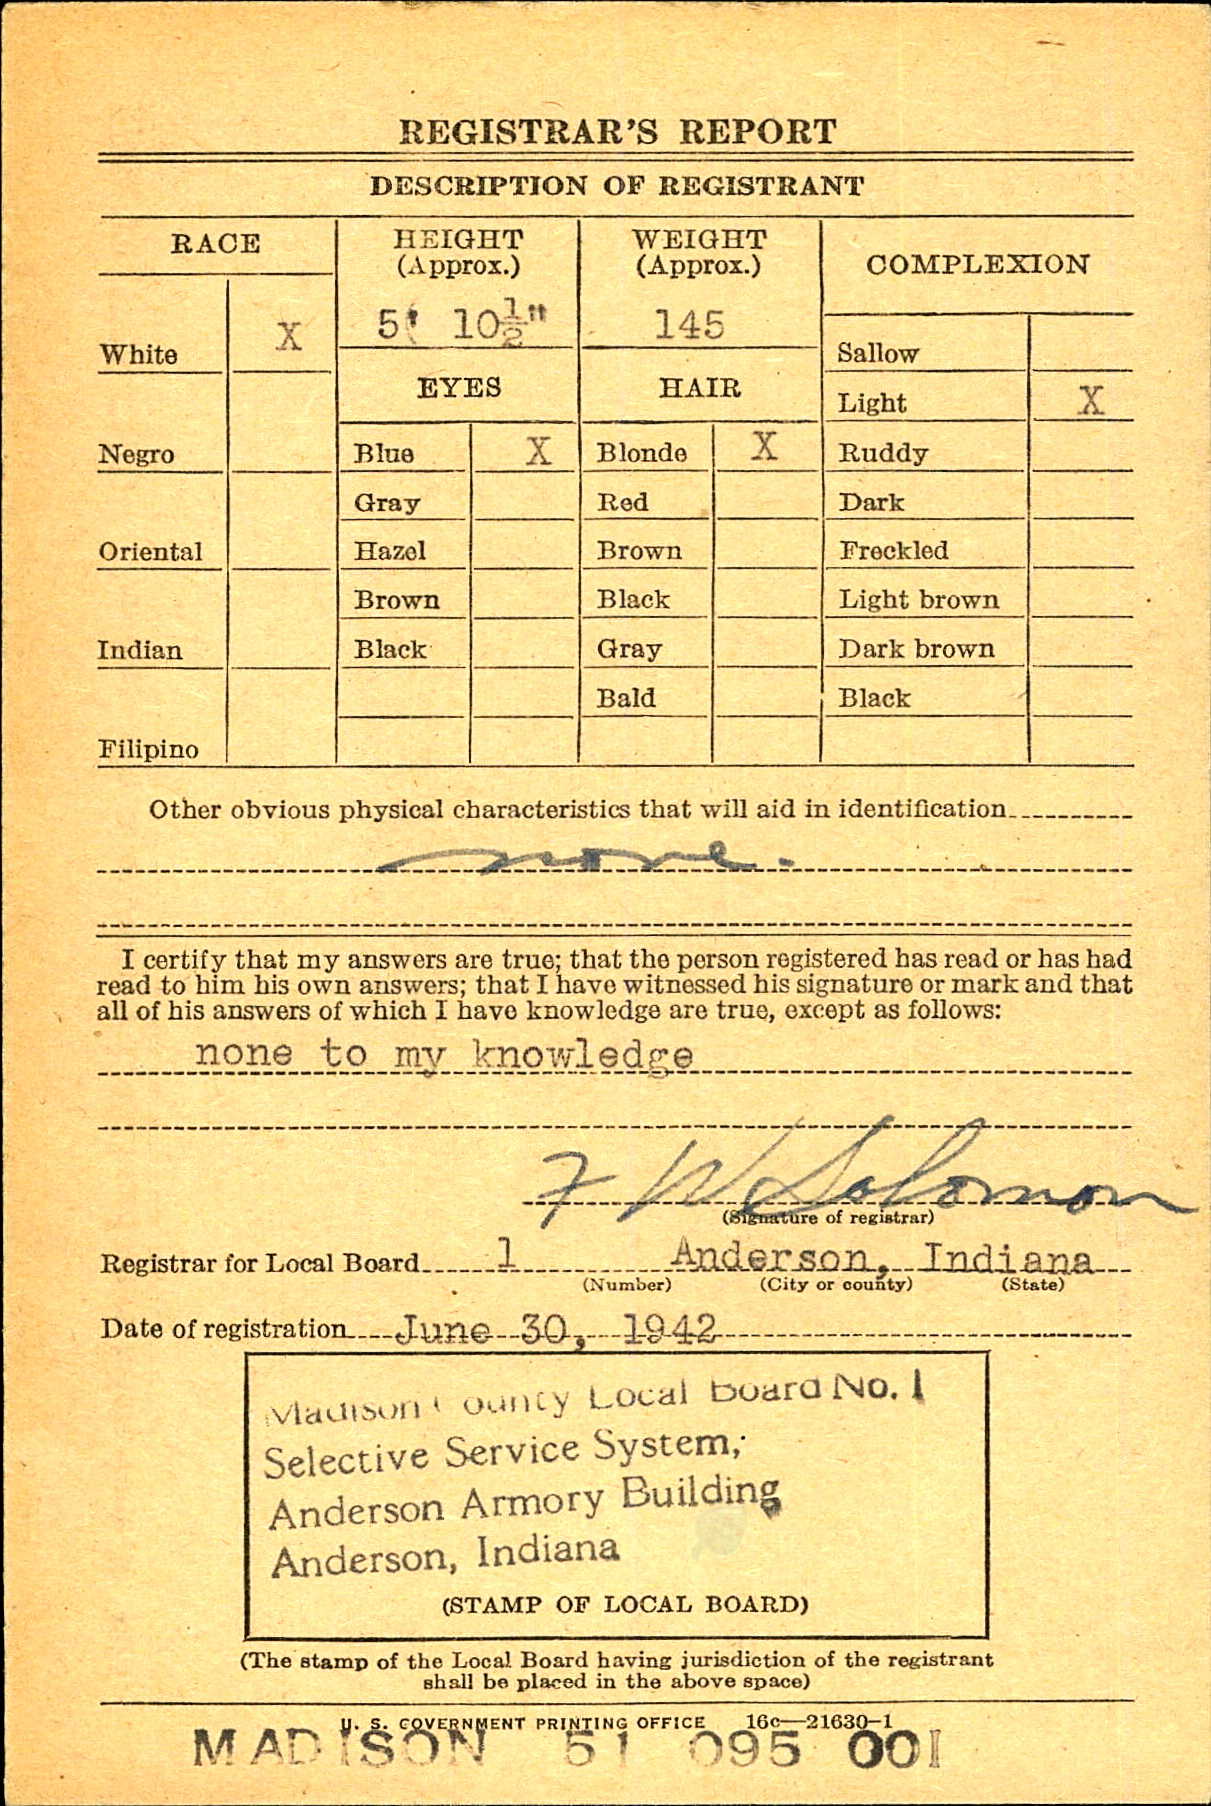 REGISTRAR'S REPORT
DESCRIPTION OF REGISTRANT
RACE
HEIGHT
(Approx.)
WEIGHT
(Approx.)
COMPLEXION
5' 10½"
145
White X
Sallow
EYES
HAIR
Light X
Negro
Blue X
Blonde X
Ruddy
Gray
Red
Dark
Oriental
Hazel
Brown
Freckled
Brown
Black
Light brown
Indian
Black
Gray
Dark brown
Bald
Black
Filipino
Other obvious physical characteristics that will aid in identification
none.
I certify that my answers are true; that the person registered has read or has had
read to him his own answers; that I have witnessed his signature or mark and that
all of his answers of which I have knowledge are true, except as follows:
none to my knowledge
F W Solomon
(Signature of registrar)
Registrar for Local Board 1 Anderson, Indiana
(Number) (City or county) (State)
Date of registration June 30, 1942
Madison County Local Board No. 1
Selective Service System,
Anderson Armory Building
Anderson, Indiana
(STAMP OF LOCAL BOARD)
(The stamp of the Local Board having jurisdiction of the registrant
shall be placed in the above space)
U. S. GOVERNMENT PRINTING OFFICE 16c—21630-1
MADISON 51 095 001